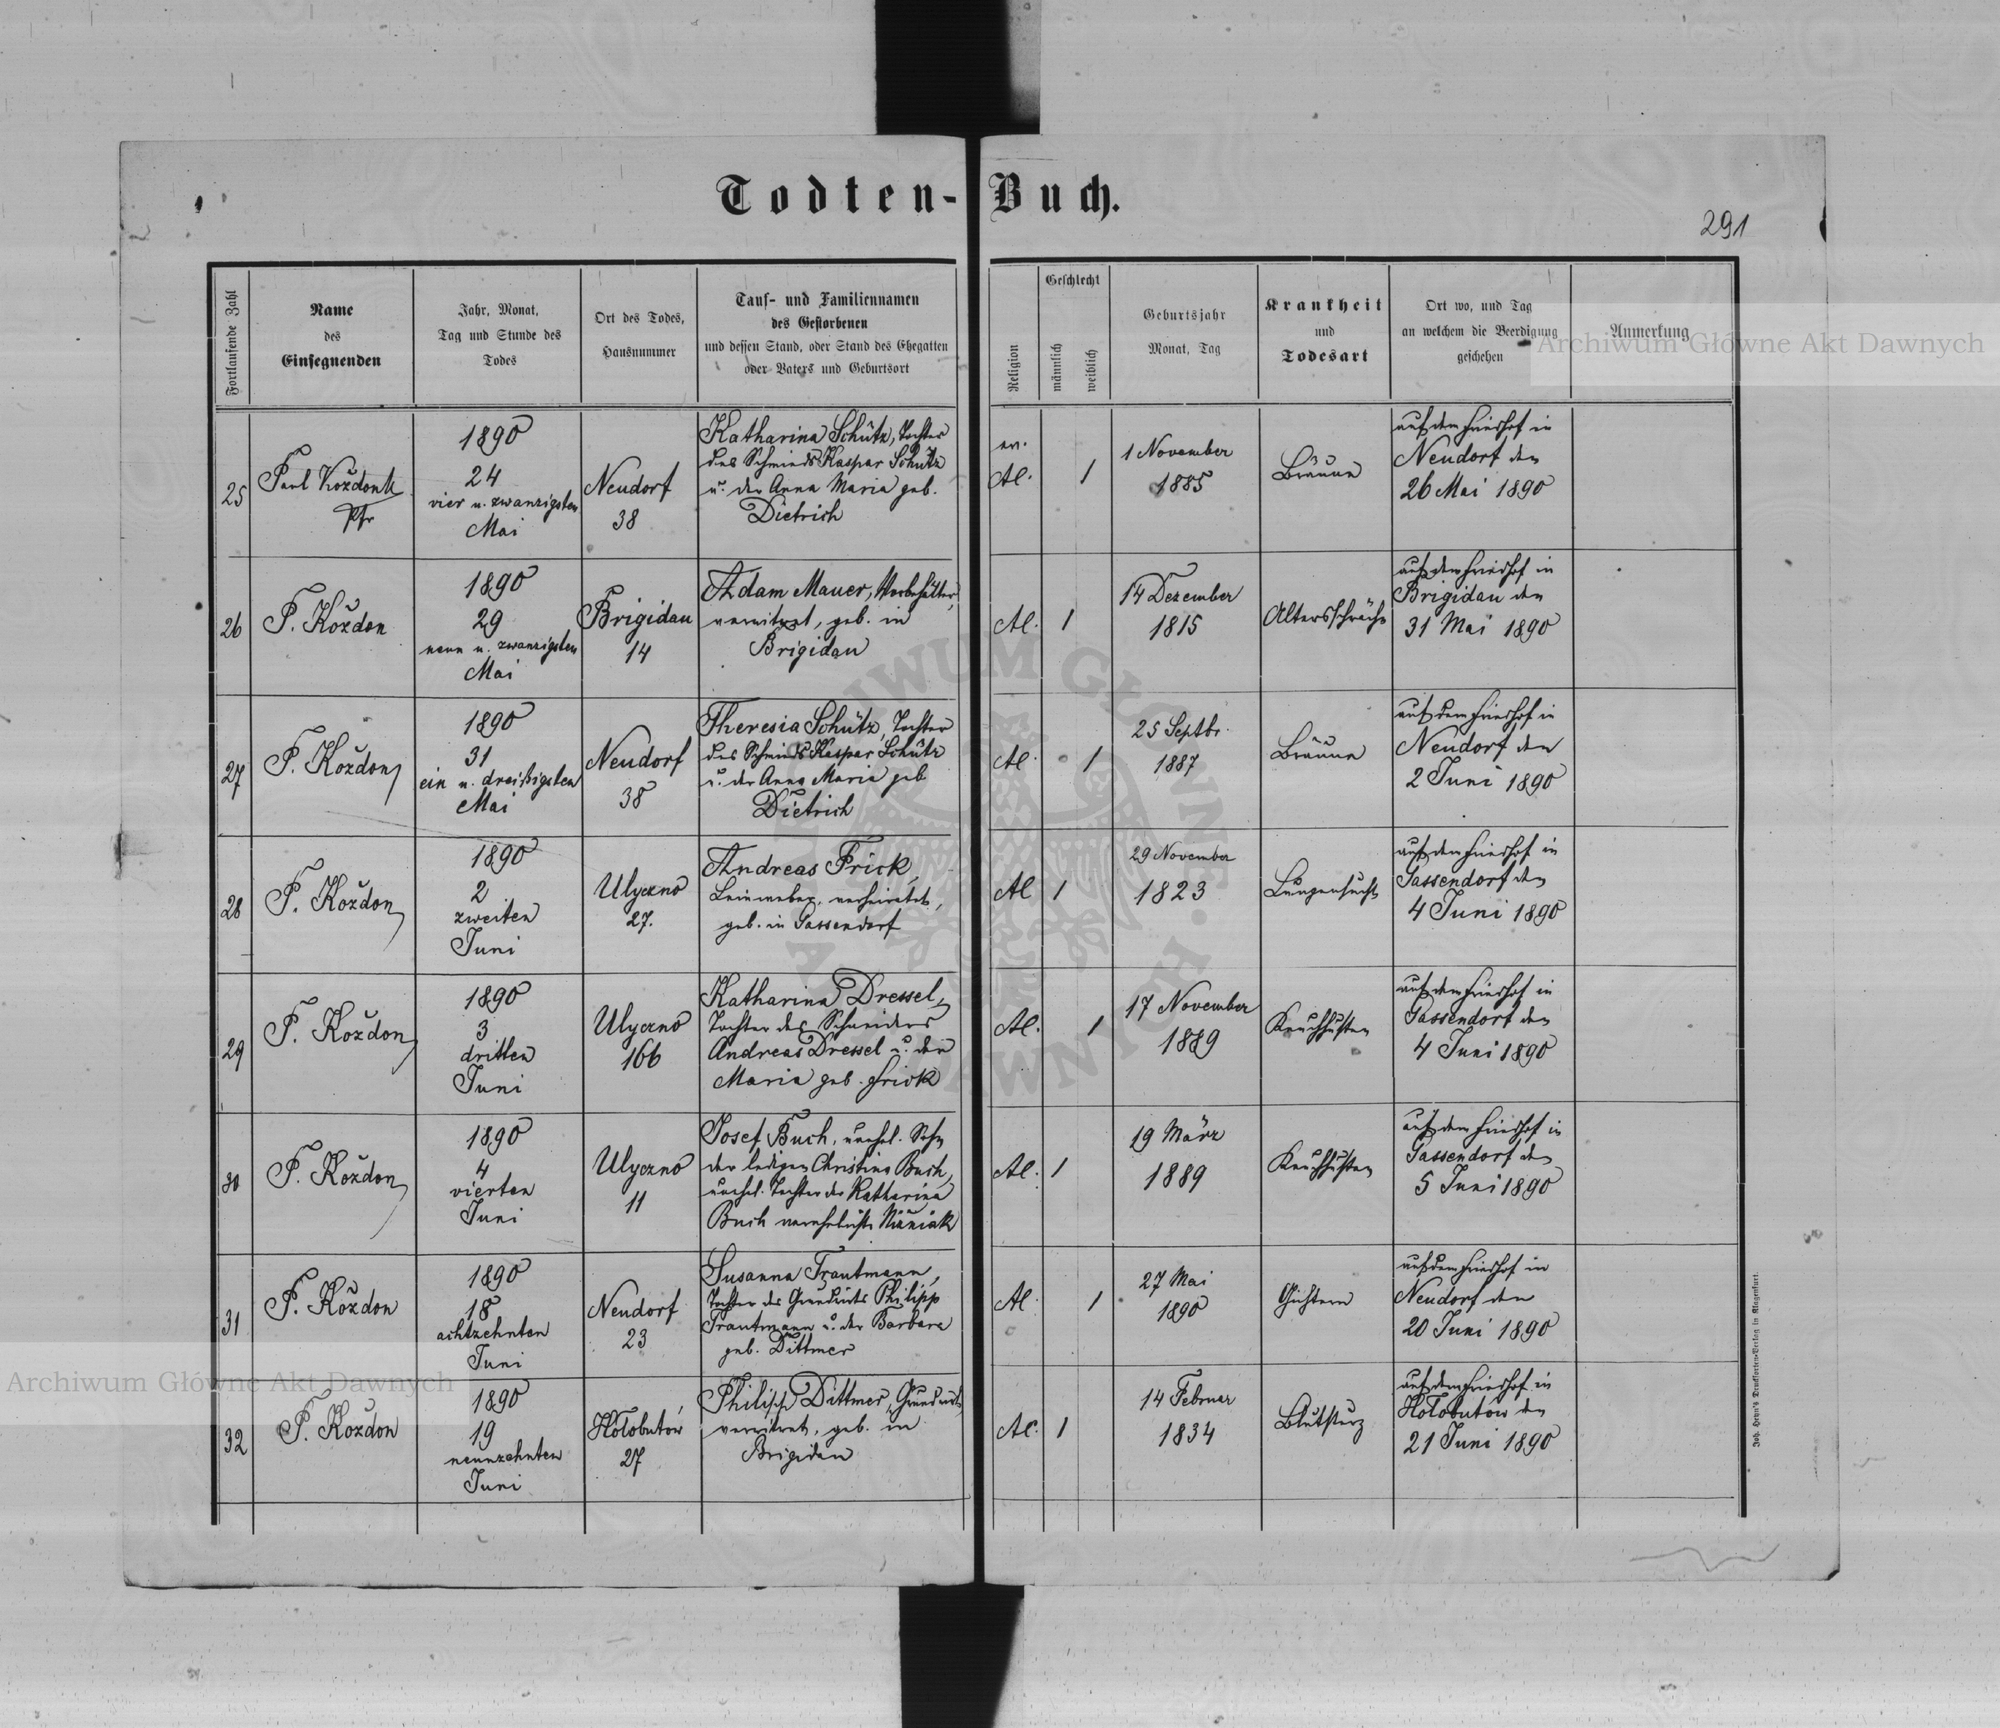 Todten-Buch.
291
Fortlaufende Zahl
Name
des
Einsegnenden
Jahr, Monat,
Tag und Stunde des
Todes
Ort des Todes,
Hausnummer
Tauf- und Familiennamen
des Gestorbenen
und dessen Stand, oder Stand des Ehegatten
oder Vaters und Geburtsort
Religion
Geschlecht
männlich
weiblich
Geburtsjahr
Monat, Tag
Krankheit
und
Todesart
Ort wo, und Tag
an welchem die Beerdigung
geschehen
Anmerkung
Archiwum Główne Akt Dawnych
25
Paul Koždon
Pfr
1890
24
vier u. zwanzigsten
Mai
Neudorf
38
Katharina Schütz, Tochter
des Schmieds Kaspar Schütz
u. der Anna Maria geb.
Dietrich
ev.
Al.
1
1 November
1885
Bräune
auf dem Friedhof in
Neudorf den
26 Mai 1890
26
P. Koždon
1890
29
neun u. zwanzigsten
Mai
Brigidau
14
Adam Mauer, Vorbehälter,
verwitwet, geb. in
Brigidau
Al.
1
14 Dezember
1815
Altersschwäche
auf dem Friedhof in
Brigidau den
31 Mai 1890
27
P. Koždon
1890
31
ein u. dreißigsten
Mai
Neudorf
38
Theresia Schütz, Tochter
des Schmieds Kaspar Schütz
u. der Anna Maria geb
Dietrich
Al.
1
25 Septbr.
1887
Bräune
auf dem Friedhof in
Neudorf den
2 Juni 1890
28
P. Koždon
1890
2
zweiten
Juni
Ulyczno
27.
Andreas Frick,
Leinweber, verheiratet,
geb. in Gassendorf
Al
1
29 November
1823
Lungensucht
auf dem Friedhof in
Gassendorf den
4 Juni 1890
29
P. Koždon
1890
3
dritten
Juni
Ulyczno
166
Katharina Dressel,
Tochter des Schneiders
Andreas Dressel u. der
Maria geb. Frick
Al.
1
17 November
1889
Keuchhusten
auf dem Friedhof in
Gassendorf den
4 Juni 1890
30
P. Koždon
1890
4
vierten
Juni
Ulyczno
11
Josef Buch, unehel. Sohn
der ledigen Christina Buch,
unehel. Tochter der Katharina
Buch verehelichte
Al.
1
19 März
1889
Keuchhusten
auf dem Friedhof in
Gassendorf den
5 Juni 1890
31
P. Koždon
1890
18
achtzehnten
Juni
Neudorf
23
Susanna Trautmann,
Tochter des Grundwirts Philipp
Trautmann u. der Barbara
geb. Dittmer
Al.
1
27 Mai
1890
Gichtern
auf dem Friedhof in
Neudorf den
20 Juni 1890
32
P. Koždon
1890
19
neunzehnten
Juni
Hołobutów
27
Philipp Dittmer, Grundwirt,
verwitwet, geb. in
Brigidau
Al.
1
14 Februar
1834
Blutsturz
auf dem Friedhof in
Hołobutów den
21 Juni 1890
Joh. Heyn's Drucksorten-Verlag in Klagenfurt.
Archiwum Główne Akt Dawnych